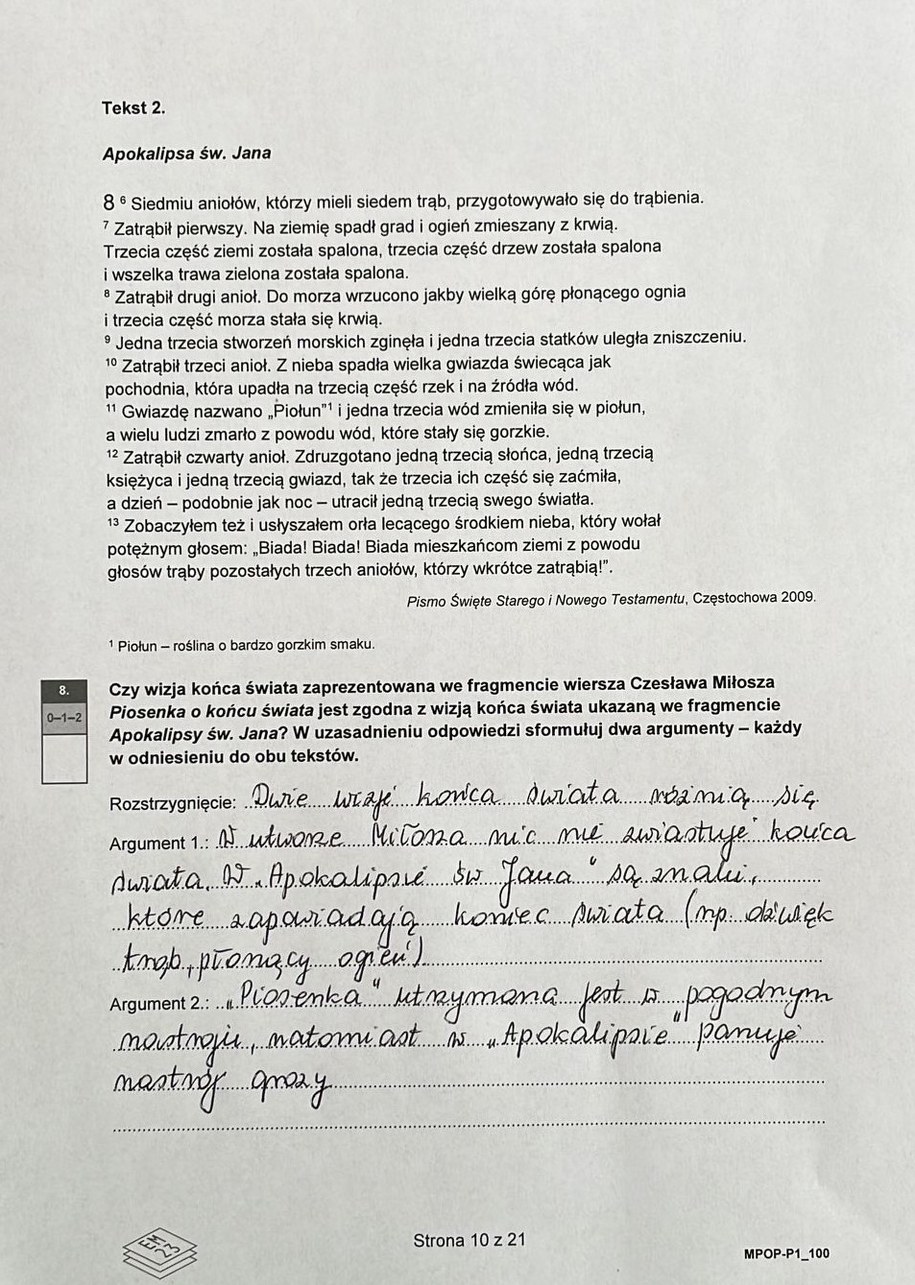 Tekst 2.
Apokalipsa św. Jana
8 ⁶ Siedmiu aniołów, którzy mieli siedem trąb, przygotowywało się do trąbienia.
⁷ Zatrąbił pierwszy. Na ziemię spadł grad i ogień zmieszany z krwią.
Trzecia część ziemi została spalona, trzecia część drzew została spalona
i wszelka trawa zielona została spalona.
⁸ Zatrąbił drugi anioł. Do morza wrzucono jakby wielką górę płonącego ognia
i trzecia część morza stała się krwią.
⁹ Jedna trzecia stworzeń morskich zginęła i jedna trzecia statków uległa zniszczeniu.
¹⁰ Zatrąbił trzeci anioł. Z nieba spadła wielka gwiazda świecąca jak
pochodnia, która upadła na trzecią część rzek i na źródła wód.
¹¹ Gwiazdę nazwano „Piołun”¹ i jedna trzecia wód zmieniła się w piołun,
a wielu ludzi zmarło z powodu wód, które stały się gorzkie.
¹² Zatrąbił czwarty anioł. Zdruzgotano jedną trzecią słońca, jedną trzecią
księżyca i jedną trzecią gwiazd, tak że trzecia ich część się zaćmiła,
a dzień – podobnie jak noc – utracił jedną trzecią swego światła.
¹³ Zobaczyłem też i usłyszałem orła lecącego środkiem nieba, który wołał
potężnym głosem: „Biada! Biada! Biada mieszkańcom ziemi z powodu
głosów trąby pozostałych trzech aniołów, którzy wkrótce zatrąbią!”.
Pismo Święte Starego i Nowego Testamentu, Częstochowa 2009.
¹ Piołun – roślina o bardzo gorzkim smaku.
8.
0–1–2
Czy wizja końca świata zaprezentowana we fragmencie wiersza Czesława Miłosza
Piosenka o końcu świata jest zgodna z wizją końca świata ukazaną we fragmencie
Apokalipsy św. Jana? W uzasadnieniu odpowiedzi sformułuj dwa argumenty – każdy
w odniesieniu do obu tekstów.
Rozstrzygnięcie: Dwie wizje końca świata różnią się
Argument 1.: W utworze Miłosza nic nie zwiastuje końca
świata. W „Apokalipsie św Jana” są znaki,
które zapowiadają koniec świata (np. dźwięk
trąb, płonący ogień)
Argument 2.: „Piosenka” utrzymana jest w pogodnym
nastroju, natomiast w „Apokalipsie” panuje
nastrój grozy
EM
23
Strona 10 z 21
MPOP-P1_100